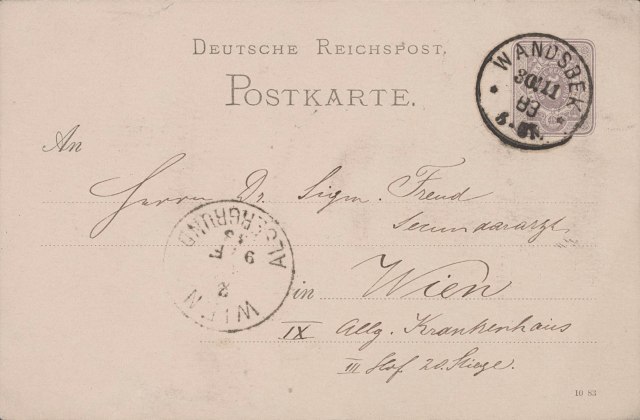 DEUTSCHE REICHSPOST.
POSTKARTE.
WANDSBEK
30/11
83
An
Herrn Dr. Sigm. Freud
Secundararzt
in Wien
IX Allg. Krankenhaus
III Hof 20. Stiege.
WIEN
ALSERGRUND
10 83